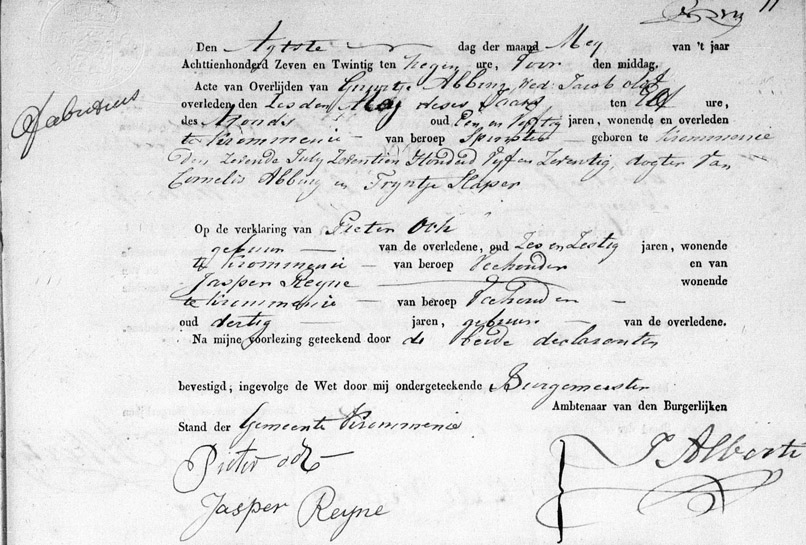 11
Den Agtste dag der maand Mey van 't jaar
Achttienhonderd Zeven en Twintig ten Negen ure, Voor den middag,
Acte van Overlijden van Guurtje Abbing Wed: Jacob
overleden den Zesden Mey dezes Jaars ten Elf ure,
des Avonds oud Een en Vyftig jaren, wonende en overleden
te Krommenie van beroep Spinster geboren te Krommenie
Den Zevende July Zeventien Honderd Vyf en Zeventig, dogter Van
Cornelis Abbing en Tryntje Slaper
Op de verklaring van Pieter Och
gebuur van de overledene, oud Zes en Zestig jaren, wonende
te Krommenie van beroep Veehouder en van
Jasper Reyne wonende
te Krommenie van beroep Veehouder
oud dertig jaren, gebuur van de overledene.
Na mijne voorlezing geteekend door de beide declaranten
bevestigd, ingevolge de Wet door mij ondergeteekende Burgemeester
Ambtenaar van den Burgerlijken
Stand der Gemeente Krommenie
Pieter och
Jasper Reyne
Alberti